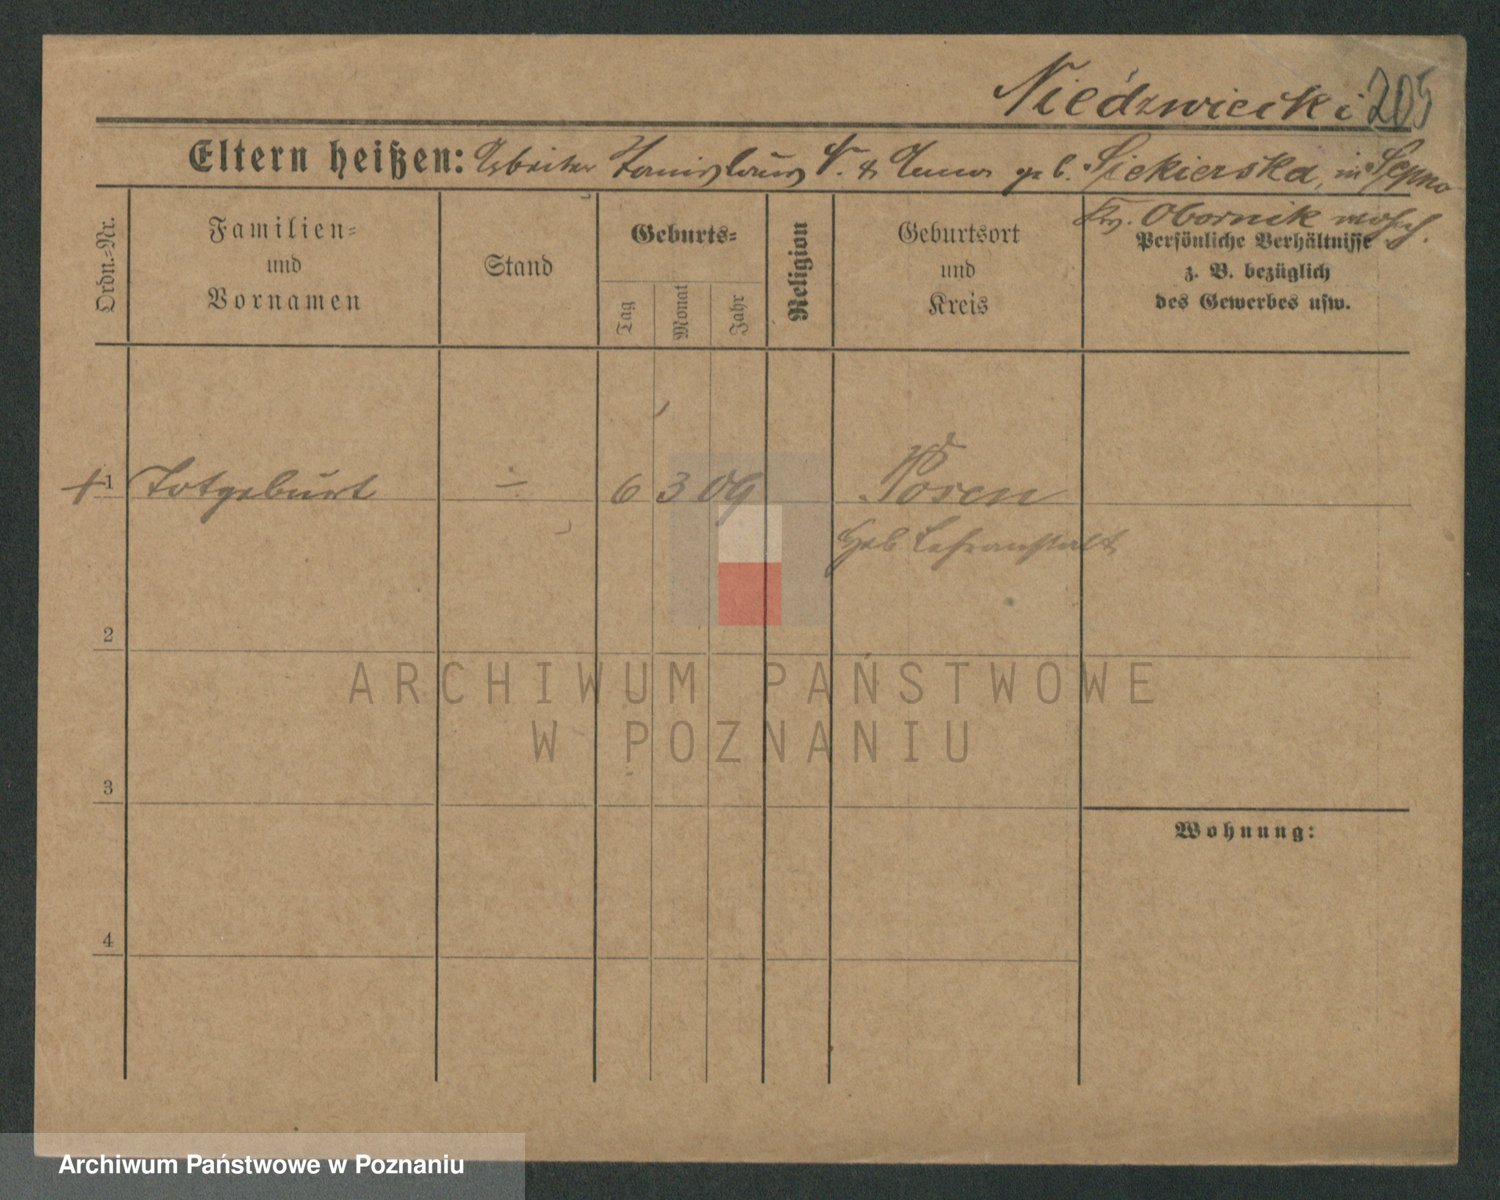 Niedzwiecki 205
Eltern heißen: Arbeiter Stanislaus N. & Anna geb. Siekierska, in Sepno
Krs. Obornik wohnh.
Ordn.-Nr.
Familien-
und
Vornamen
Stand
Geburts-
Tag
Monat
Jahr
Religion
Geburtsort
und
Kreis
Persönliche Verhältnisse
z. B. bezüglich
des Gewerbes usw.
+ 1 Totgeburt ÷ 6 3 09 Posen
Heb. Lehranstalt
2
ARCHIWUM PAŃSTWOWE
W POZNANIU
3
Wohnung:
4
Archiwum Państwowe w Poznaniu